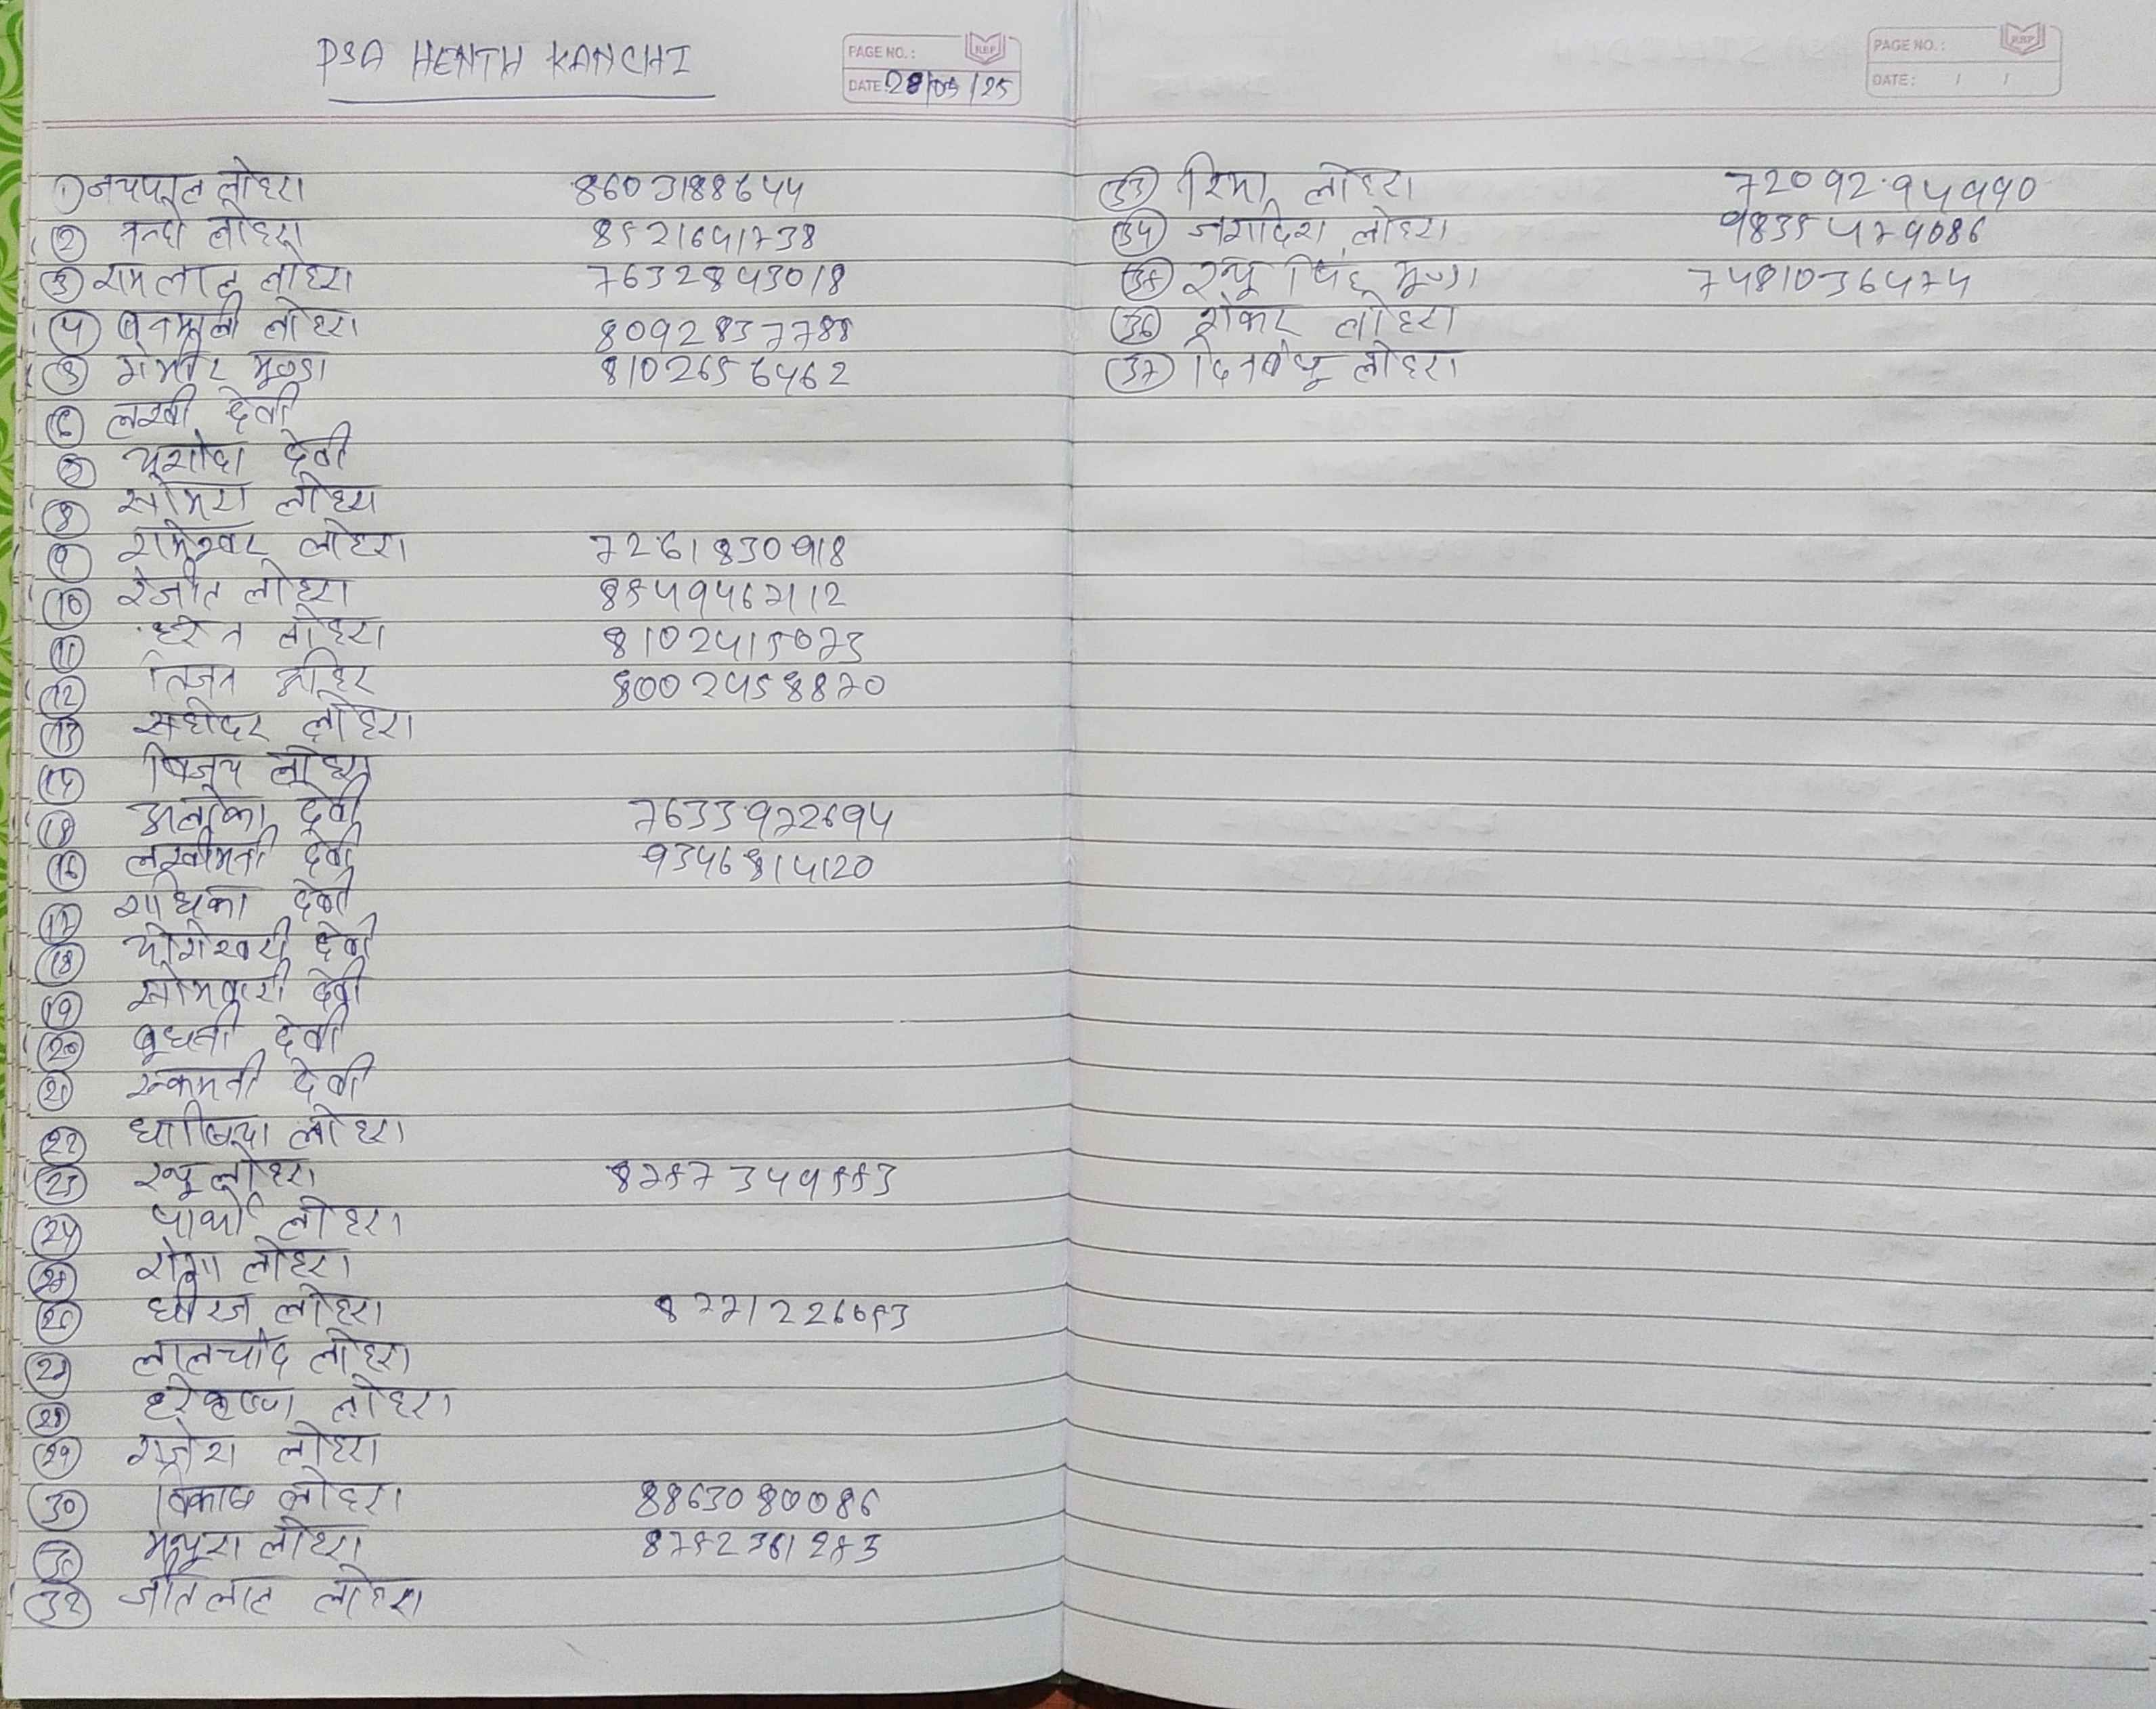 PSA HENTH KANCHI
PAGE NO.:
DATE: 28/05/25
① जयपाल लोहरा 8603188644
② नन्दी लोहरा 8521641738
③ रामलाल लोहरा 7632843018
④ बनमाली लोहरा 8092837788
⑤ गंभीर मुण्डा 8102656462
⑥ लखी देवी
⑦ यशोदा देवी
⑧ सोमरा लोहरा
⑨ रामेश्वर लोहरा 7261830918
⑩ रंजीत लोहरा 8549467112
⑪ लोहरा 8102415073
⑫ 8002458870
⑬ सहोदर लोहरा
⑭ बिजय लोहरा
⑮ अलोका देवी 7633972694
⑯ लखीमनी देवी 9346814120
⑰ राधिका देवी
⑱ योगेश्वरी देवी
⑲ सोमवारी देवी
⑳ बुधनी देवी
㉑ रुकमनी देवी
㉒ लोहरा
㉓ रघु लोहरा 8757349553
㉔ लोहरा
㉕ लोहरा
㉖ धीरज लोहरा 8771226653
㉗ लालचांद लोहरा
㉘ हरेकृष्ण लोहरा
㉙ राजेश लोहरा
㉚ विकाश लोहरा 8863080086
㉛ मथुरा लोहरा 8752361253
㉜ जीतलाल लोहरा
PAGE NO.:
DATE: / /
㉝ रिमा लोहरा 7209294990
㉞ जगदिश लोहरा 9835479086
㉟ रघु सिंह मुण्डा 7481036474
㊱ शंकर लोहरा
㊲ दिनबंधु लोहरा